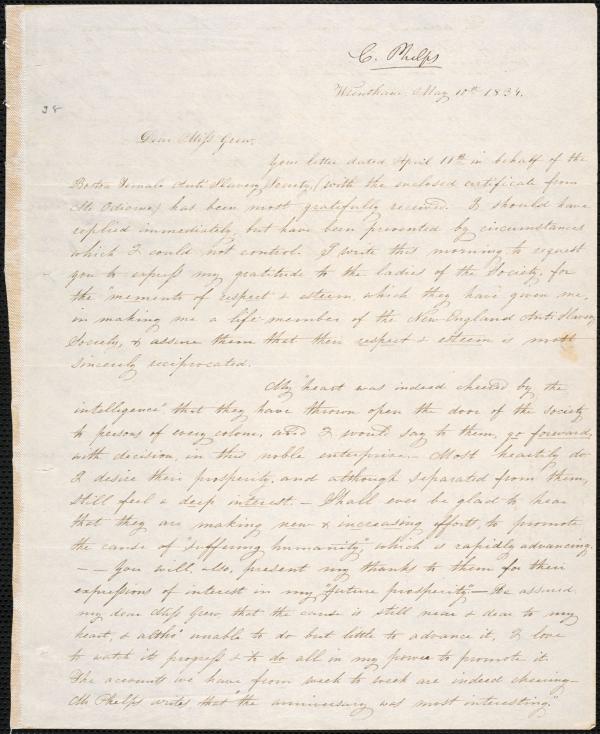 C. Phelps
Wrentham May 10th 1834.
38
Dear Miss Grew,
Your letter dated April 11th in behalf of the
Boston Female Anti Slavery Society, (with the enclosed certificate from
Mr Odiorne) has been most gratefully received. I should have
replied immediately, but have been prevented by circumstances
which I could not control. I write this morning to request
you to express my gratitude to the ladies of the Society, for
the "memento of respect & esteem, which they have given me,
in making me a life-member of the New-England Anti Slavery
Society, & assure them that their respect & esteem is most
sincerely reciprocated.
My "heart was indeed cheered by the
intelligence" that they have thrown open the door of the society
to persons of every colour, and I would say to them, go forward,
with decision, in this noble enterprise. - Most heartily do
I desire their prosperity, and although separated from them,
still feel a deep interest. - Shall ever be glad to hear
that they are making new & increasing efforts, to promote
the cause of "suffering humanity", which is rapidly advancing.
- - You will, also, present my thanks to them for their
expressions of interest in my "future prosperity" - Be assured
my dear Miss Grew, that the cause is still near & dear to my
heart, & altho' unable to do but little to advance it, I love
to watch its progress & to do all in my power to promote it.
The accounts we have from week to week are indeed cheering -
Mr Phelps writes that "the anniversary was most interesting."